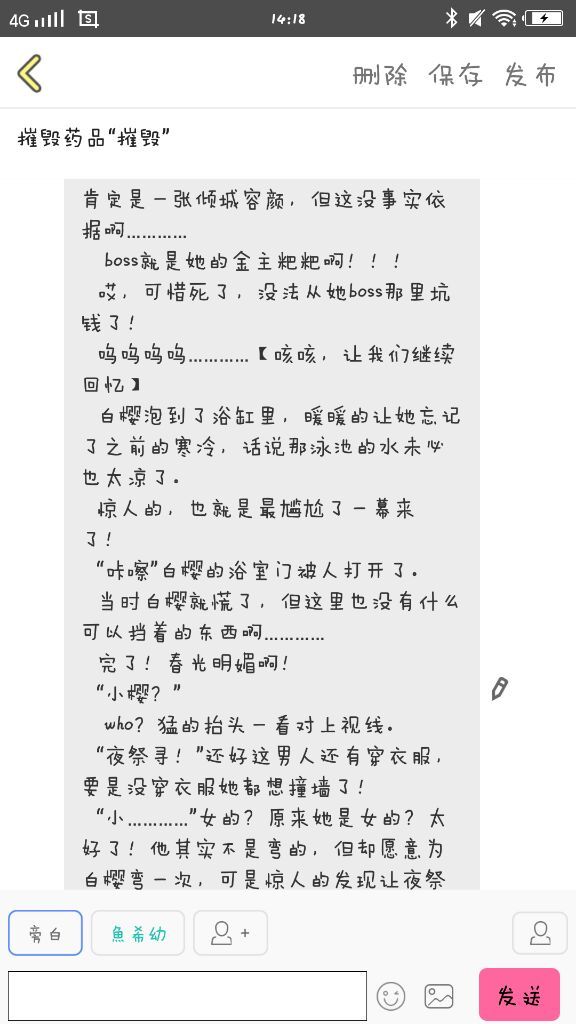 4G
14:18
删除 保存 发布
摧毁药品“摧毁”
肯定是一张倾城容颜，但这没事实依
据啊…………
boss就是她的金主粑粑啊！！！
哎，可惜死了，没法从她boss那里坑
钱了！
呜呜呜呜…………【咳咳，让我们继续
回忆】
白樱泡到了浴缸里，暖暖的让她忘记
了之前的寒冷，话说那泳池的水未必
也太凉了。
惊人的，也就是最尴尬了一幕来
了！
“咔嚓”白樱的浴室门被人打开了。
当时白樱就慌了，但这里也没有什么
可以挡着的东西啊…………
完了！春光明媚啊！
“小樱？”
who？猛的抬头一看对上视线。
“夜祭寻！”还好这男人还有穿衣服，
要是没穿衣服她都想撞墙了！
“小…………”女的？原来她是女的？太
好了！他其实不是弯的，但却愿意为
白樱弯一次，可是惊人的发现让夜祭
旁白
鱼希幼
+
发送